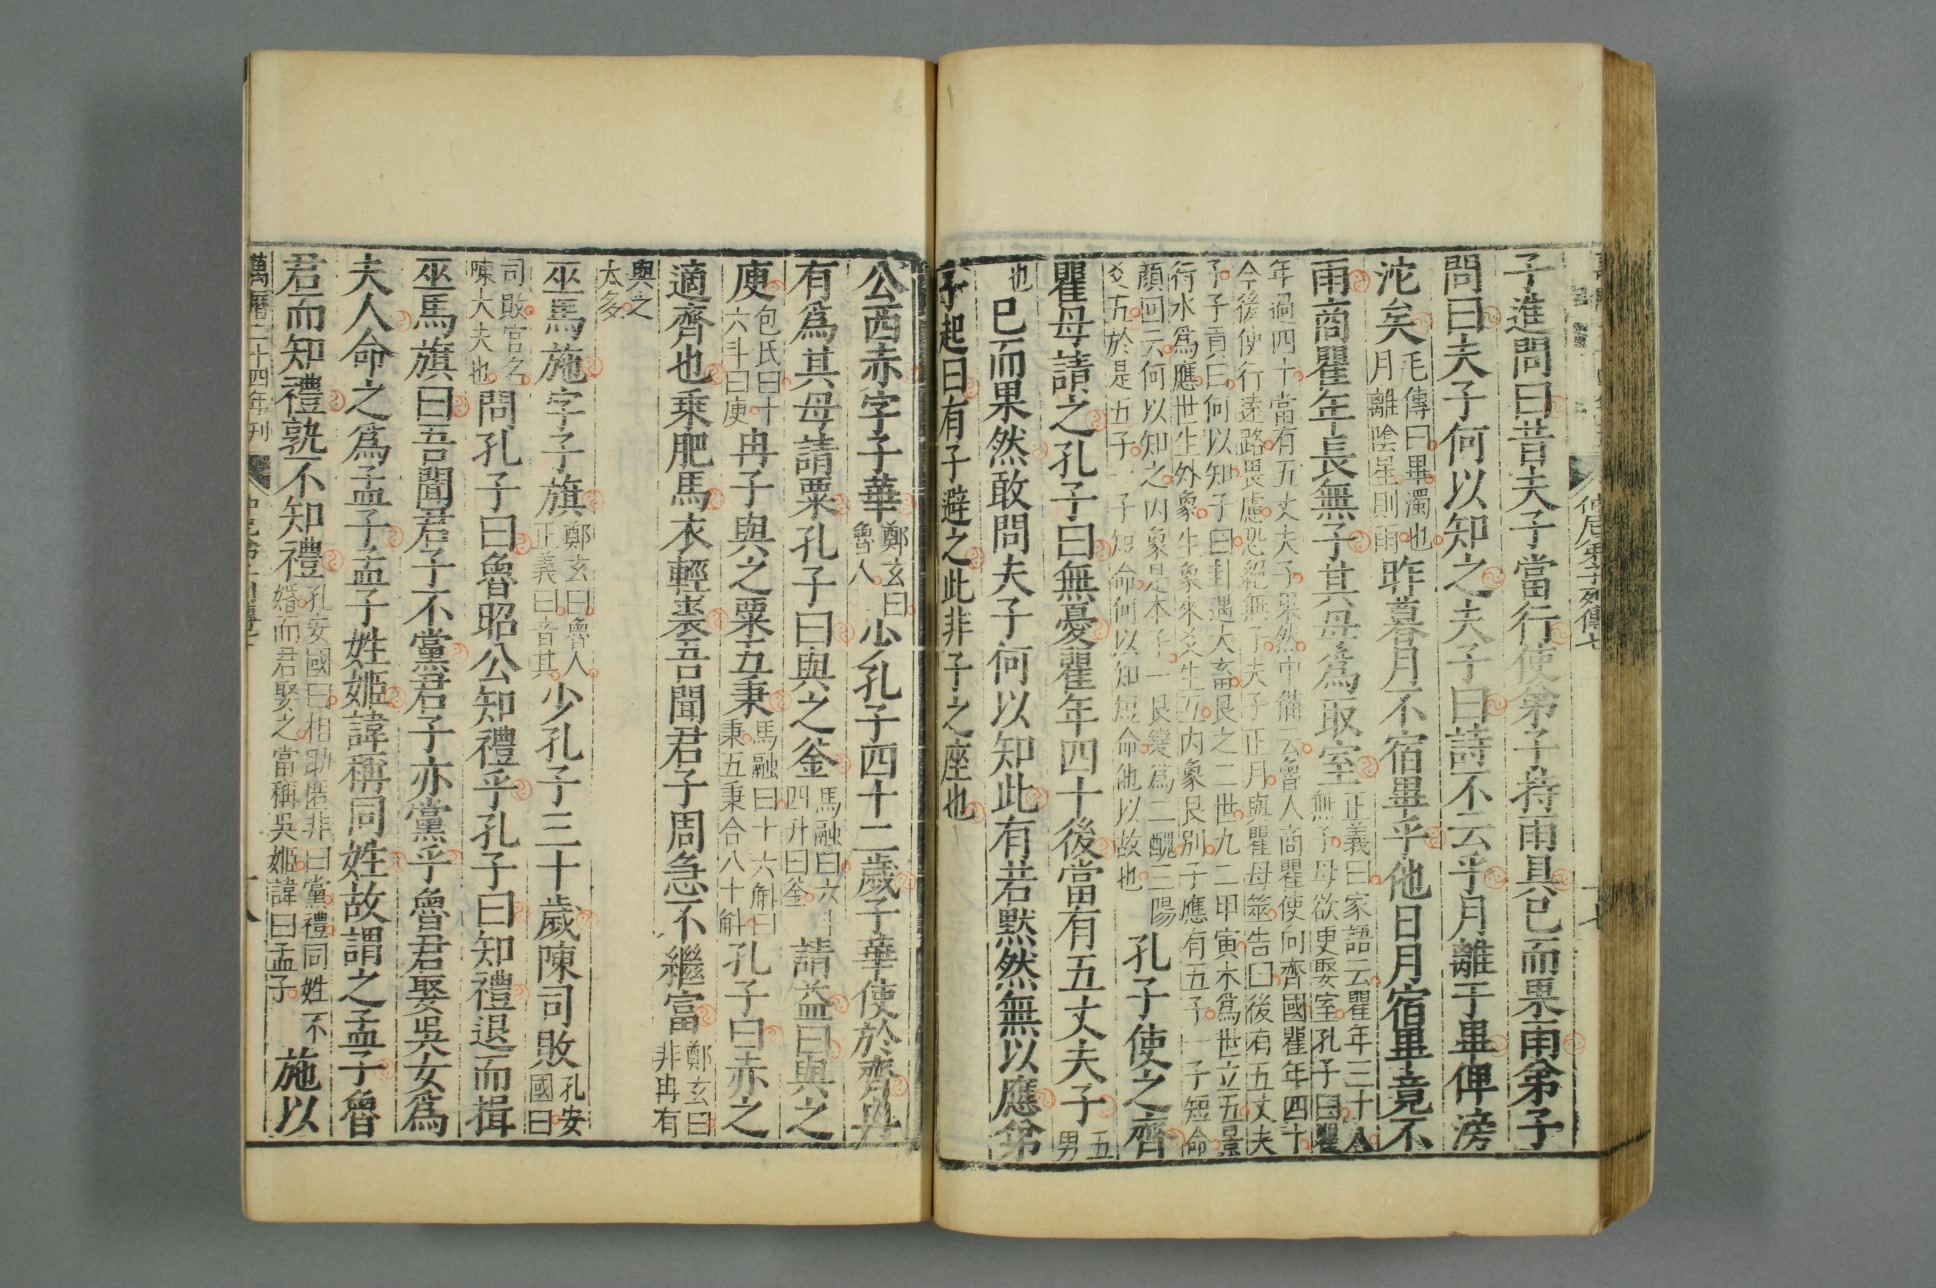 仲尼弟子列傳七
子進問曰昔夫子當行使弟子持雨具已而果雨弟子
問曰夫子何以知之夫子曰詩不云乎月離于畢俾滂
沱矣毛傳曰畢濁也月離陰星則雨昨暮月不宿畢乎他日月宿畢竟不
雨商瞿年長無子其母爲取室正義曰家語云瞿年三十八無子母欲更娶室孔子曰瞿
年過四十當有五丈夫子果然中備云魯人商瞿使向齊國瞿年四十
今後使行遠路畏慮恐絕無子夫子正月與瞿母筮告曰後有五丈夫
子子貢曰何以知子曰卦遇大畜艮之二世九二甲寅木爲世立五景
行水爲應世生外象生象來爻生互內象艮別子應有五子一子短命
顏回云何以知之內象是本子一艮變爲二醜三陽
爻五於是五子一子短命何以知短命他以故也孔子使之齊
瞿母請之孔子曰無憂瞿年四十後當有五丈夫子五男
也已而果然敢問夫子何以知此有若默然無以應弟
子起曰有子避之此非子之座也
公西赤字子華鄭玄曰魯人少孔子四十二歲子華使於齊冉
有爲其母請粟孔子曰與之釜馬融曰六斗四升曰釜請益曰與之
庾包氏曰十六斗曰庾冉子與之粟五秉馬融曰十六斛曰秉五秉合八十斛孔子曰赤之
適齊也乘肥馬衣輕裘吾聞君子周急不繼富鄭玄曰非冉有
與之太多
巫馬施字子旗鄭玄曰魯人正義曰音其少孔子三十歲陳司敗孔安國曰
司敗官名陳大夫也問孔子曰魯昭公知禮乎孔子曰知禮退而揖
巫馬旗曰吾聞君子不黨君子亦黨乎魯君娶吳女爲
夫人命之爲孟子孟子姓姬諱稱同姓故謂之孟子魯
君而知禮孰不知禮孔安國曰相助匿非曰黨禮同姓不婚而君娶之當稱吳姬諱曰孟子施以
萬曆二十四年刊
十八